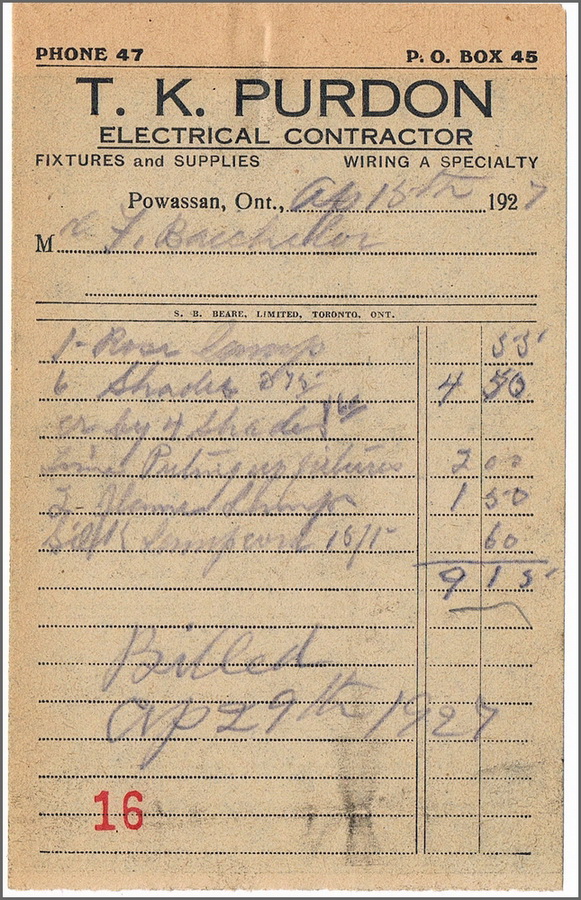 PHONE 47 P. O. BOX 45
T. K. PURDON
ELECTRICAL CONTRACTOR
FIXTURES and SUPPLIES WIRING A SPECIALTY
Powassan, Ont., Ap 15th 1927
M F. Batchellor
S. B. BEARE, LIMITED, TORONTO, ONT.
1- Rose Lamp 55
6 Shades 4 50
cr by 4 Shades
Time Puting up fixtures 2 00
2- Lamps 1 50
Silk Lampcord 60
9 15
Billed
Ap 29th 1927
16